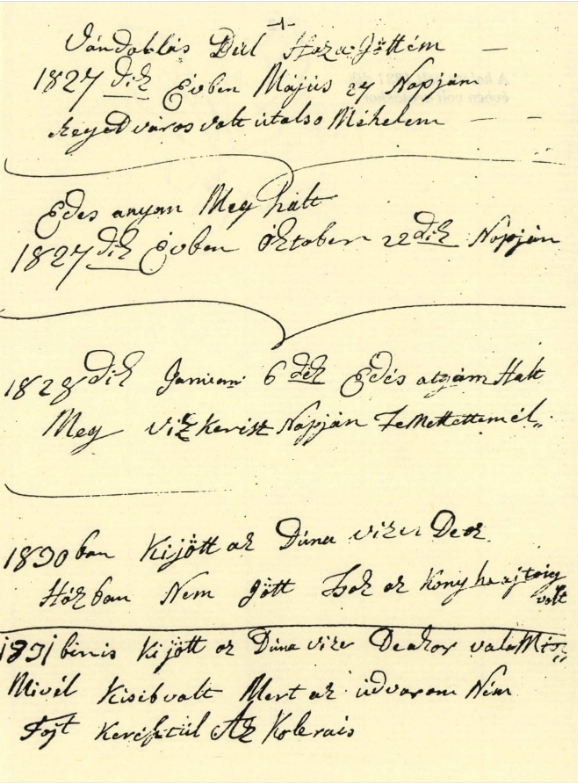 -1-
Vándoblás Bul Haza Jöttém —
1827 dik Évben Május 27 Napján
szeged város valt útalso Méhelem — —
Edes anyam Meg halt
1827 dik Évben Oktober 22 dik Napján
1828 dik Januari 6 dik Edés atyám Halt
Meg viz kerist Napján Temettettem él„
1830 ban Kijött az Dúna vize De az
Házban Nem Jött bé az Konyha ajtoig
valt
1831 binis Kijött az Dúna vize De akor
Mivél Kisib valt Mert az údvaram Ném
Fojt Ař Kolerais